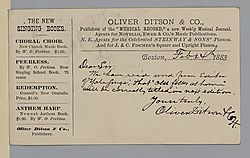 THE NEW
SINGING BOOKS.
CHORAL CHOIR.
New Church Music Book.
By W. O. Perkins. $1.00.
PEERLESS.
By W. O. Perkins. New
Singing School Book. 75
cents.
REDEMPTION.
Gounod's New Oratorio.
Price, $1.00.
ANTHEM HARP.
Newest Anthem Book.
By W. O. Perkins. $1.25.
Oliver Ditson & Co.,
Publishers.
OLIVER DITSON & CO.,
Publishers of the "MUSICAL RECORD," a new Weekly Musical Journal.
Agents for NOVELLO, EWER & CO.'S Music Publications.
N. E. Agents for the Celebrated STEINWAY & SONS' Pianos.
And for J. & C. FISCHER'S Square and Upright Pianos.
Boston, Feb 1883
Dear Sir:
We have read yours from
that
will be correctly titled in new edition.
Yours truly,
Oliver Ditson & Co.